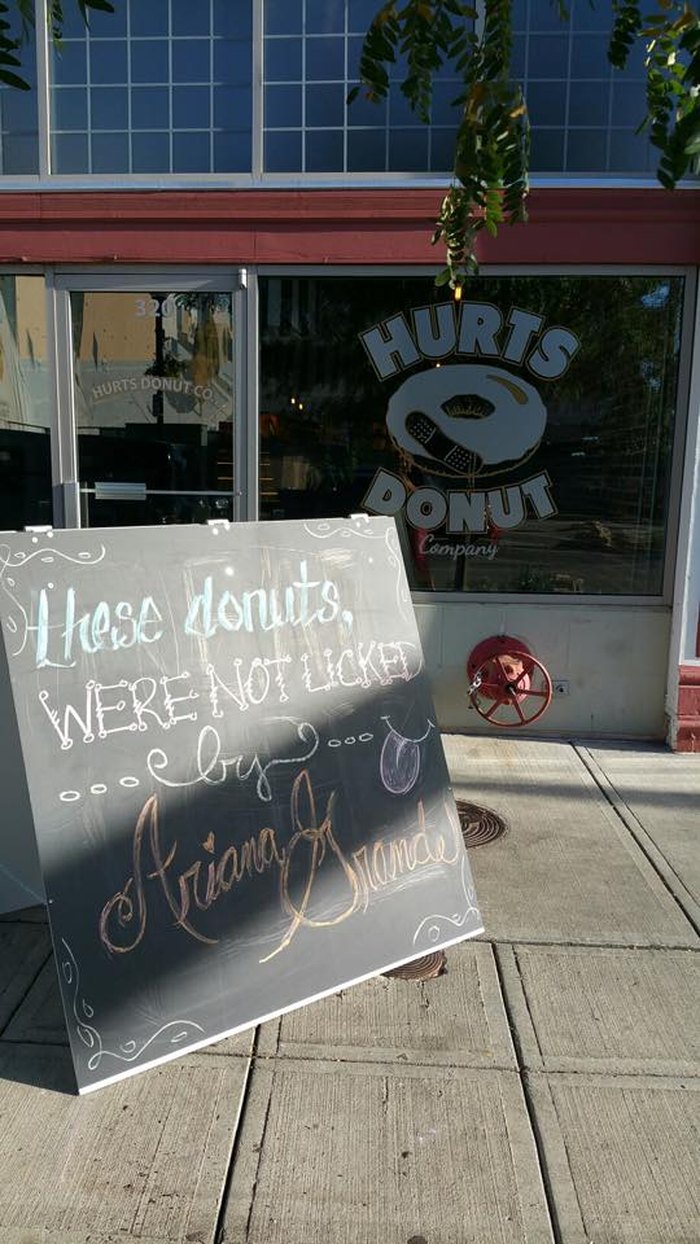 320
HURTS DONUT CO.
HURTS
DONUT
Company
these donuts,
WERE NOT LICKED
by
Ariana Grande